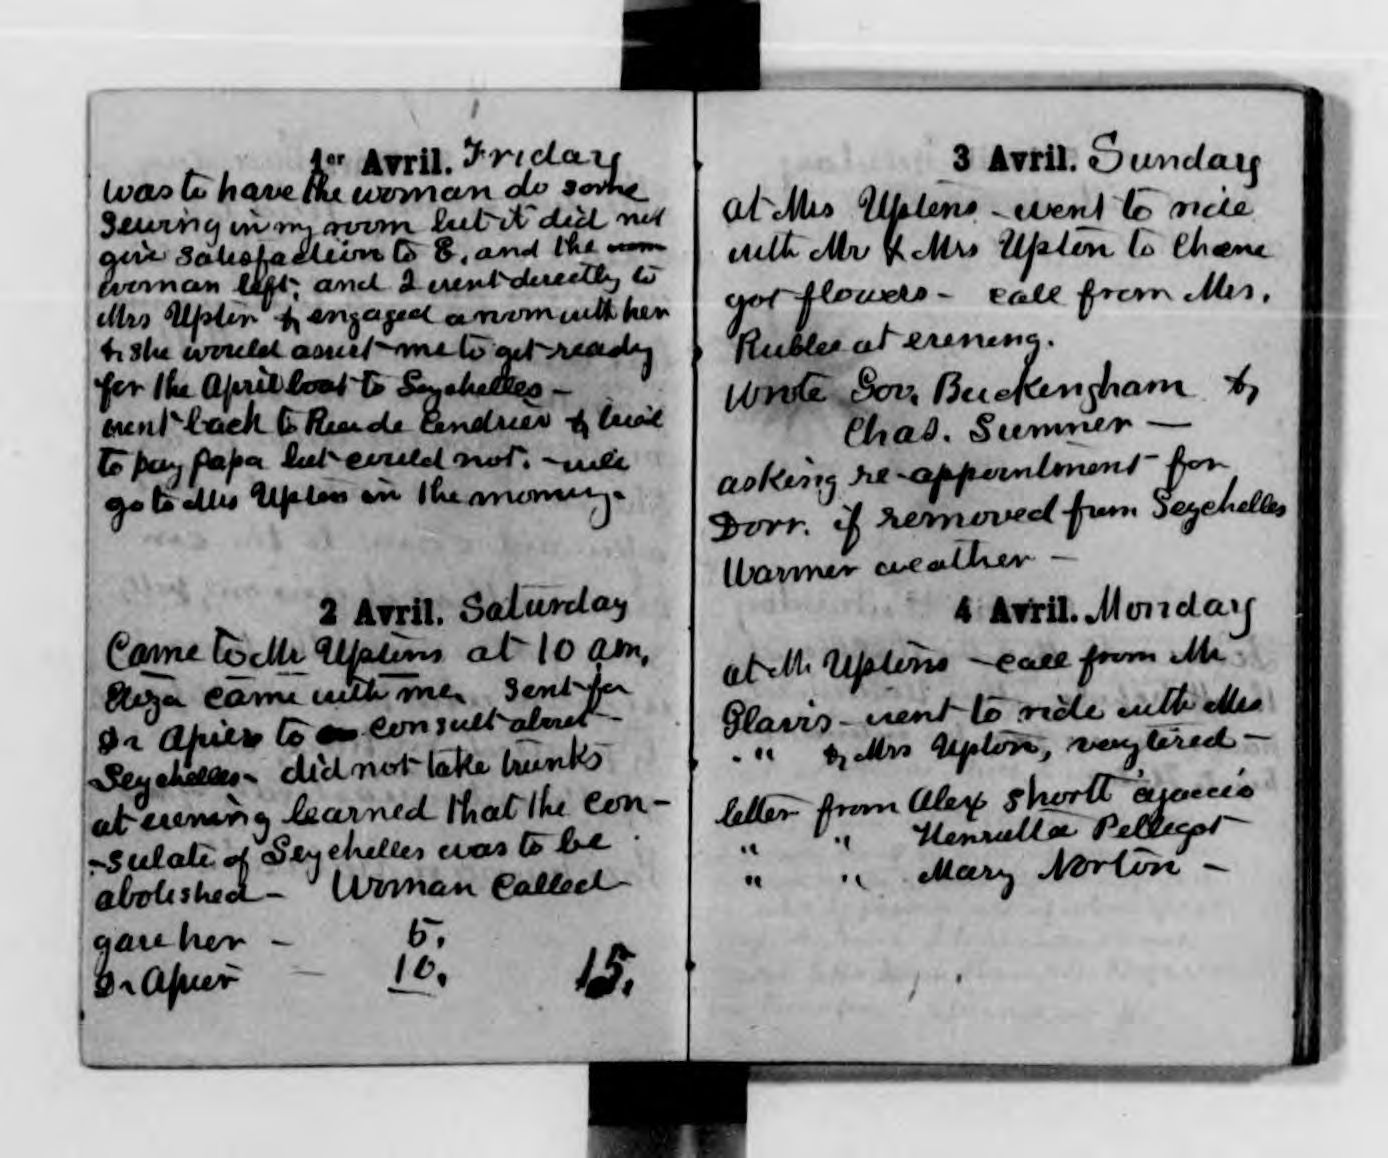 1er Avril. Friday
was to have the woman do some
sewing in my room but it did not
give satisfaction to E. and the wom
woman left, and I went directly to
Mrs Upton & engaged a room with her
& she would assist me to get ready
for the April boat to Seychelles -
went back to Rue de Cendrier & tried
to pay papa but could not. - will
go to Mrs Upton in the morning.
2 Avril. Saturday
Came to Mr Uptons at 10 a.m.
Eliza came with me. Sent for
Dr Apier to consult about -
Seychelles - did not take trunks
at evening learned that the con-
-sulate of Seychelles was to be
abolished - Woman called
gave her - 5.
Dr Apier - 10. 15.
3 Avril. Sunday
at Mrs Uptons - went to ride
with Mr & Mrs Upton to Chene
got flowers - call from Mrs.
Rublee at evening.
Wrote Gov. Buckingham &
Chas. Sumner -
asking re-appointment for
Dorr. if removed from Seychelles
Warmer weather -
4 Avril. Monday
at Mr Uptons - call from Mr
Glavis - went to ride with Mrs
" & Mrs Upton, very tired -
letter from Alex Shortt ajaccio
" " Henrietta
" " Mary Norton -